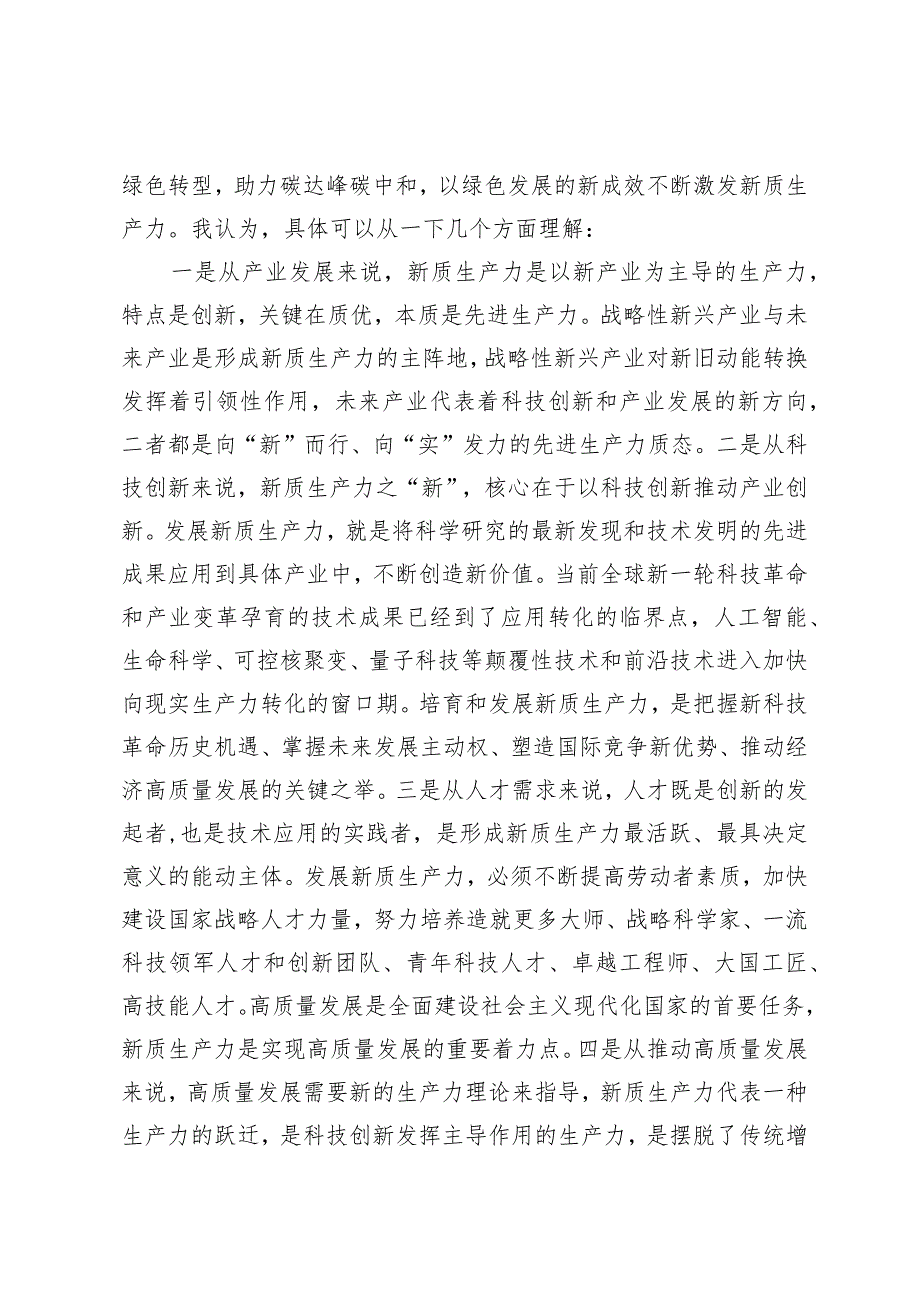 绿色转型，助力碳达峰碳中和，以绿色发展的新成效不断激发新质生
产力。我认为，具体可以从一下几个方面理解：
一是从产业发展来说，新质生产力是以新产业为主导的生产力，
特点是创新，关键在质优，本质是先进生产力。战略性新兴产业与未
来产业是形成新质生产力的主阵地，战略性新兴产业对新旧动能转换
发挥着引领性作用，未来产业代表着科技创新和产业发展的新方向，
二者都是向“新”而行、向“实”发力的先进生产力质态。二是从科
技创新来说，新质生产力之“新”，核心在于以科技创新推动产业创
新。发展新质生产力，就是将科学研究的最新发现和技术发明的先进
成果应用到具体产业中，不断创造新价值。当前全球新一轮科技革命
和产业变革孕育的技术成果已经到了应用转化的临界点，人工智能、
生命科学、可控核聚变、量子科技等颠覆性技术和前沿技术进入加快
向现实生产力转化的窗口期。培育和发展新质生产力，是把握新科技
革命历史机遇、掌握未来发展主动权、塑造国际竞争新优势、推动经
济高质量发展的关键之举。三是从人才需求来说，人才既是创新的发
起者,也是技术应用的实践者，是形成新质生产力最活跃、最具决定
意义的能动主体。发展新质生产力，必须不断提高劳动者素质，加快
建设国家战略人才力量，努力培养造就更多大师、战略科学家、一流
科技领军人才和创新团队、青年科技人才、卓越工程师、大国工匠、
高技能人才。高质量发展是全面建设社会主义现代化国家的首要任务，
新质生产力是实现高质量发展的重要着力点。四是从推动高质量发展
来说，高质量发展需要新的生产力理论来指导，新质生产力代表一种
生产力的跃迁，是科技创新发挥主导作用的生产力，是摆脱了传统增